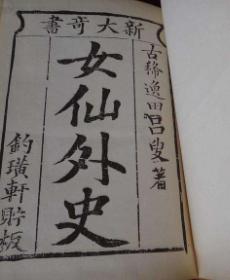 新大奇書
古稀逸田呂叟著
女仙外史
釣璜軒貯板